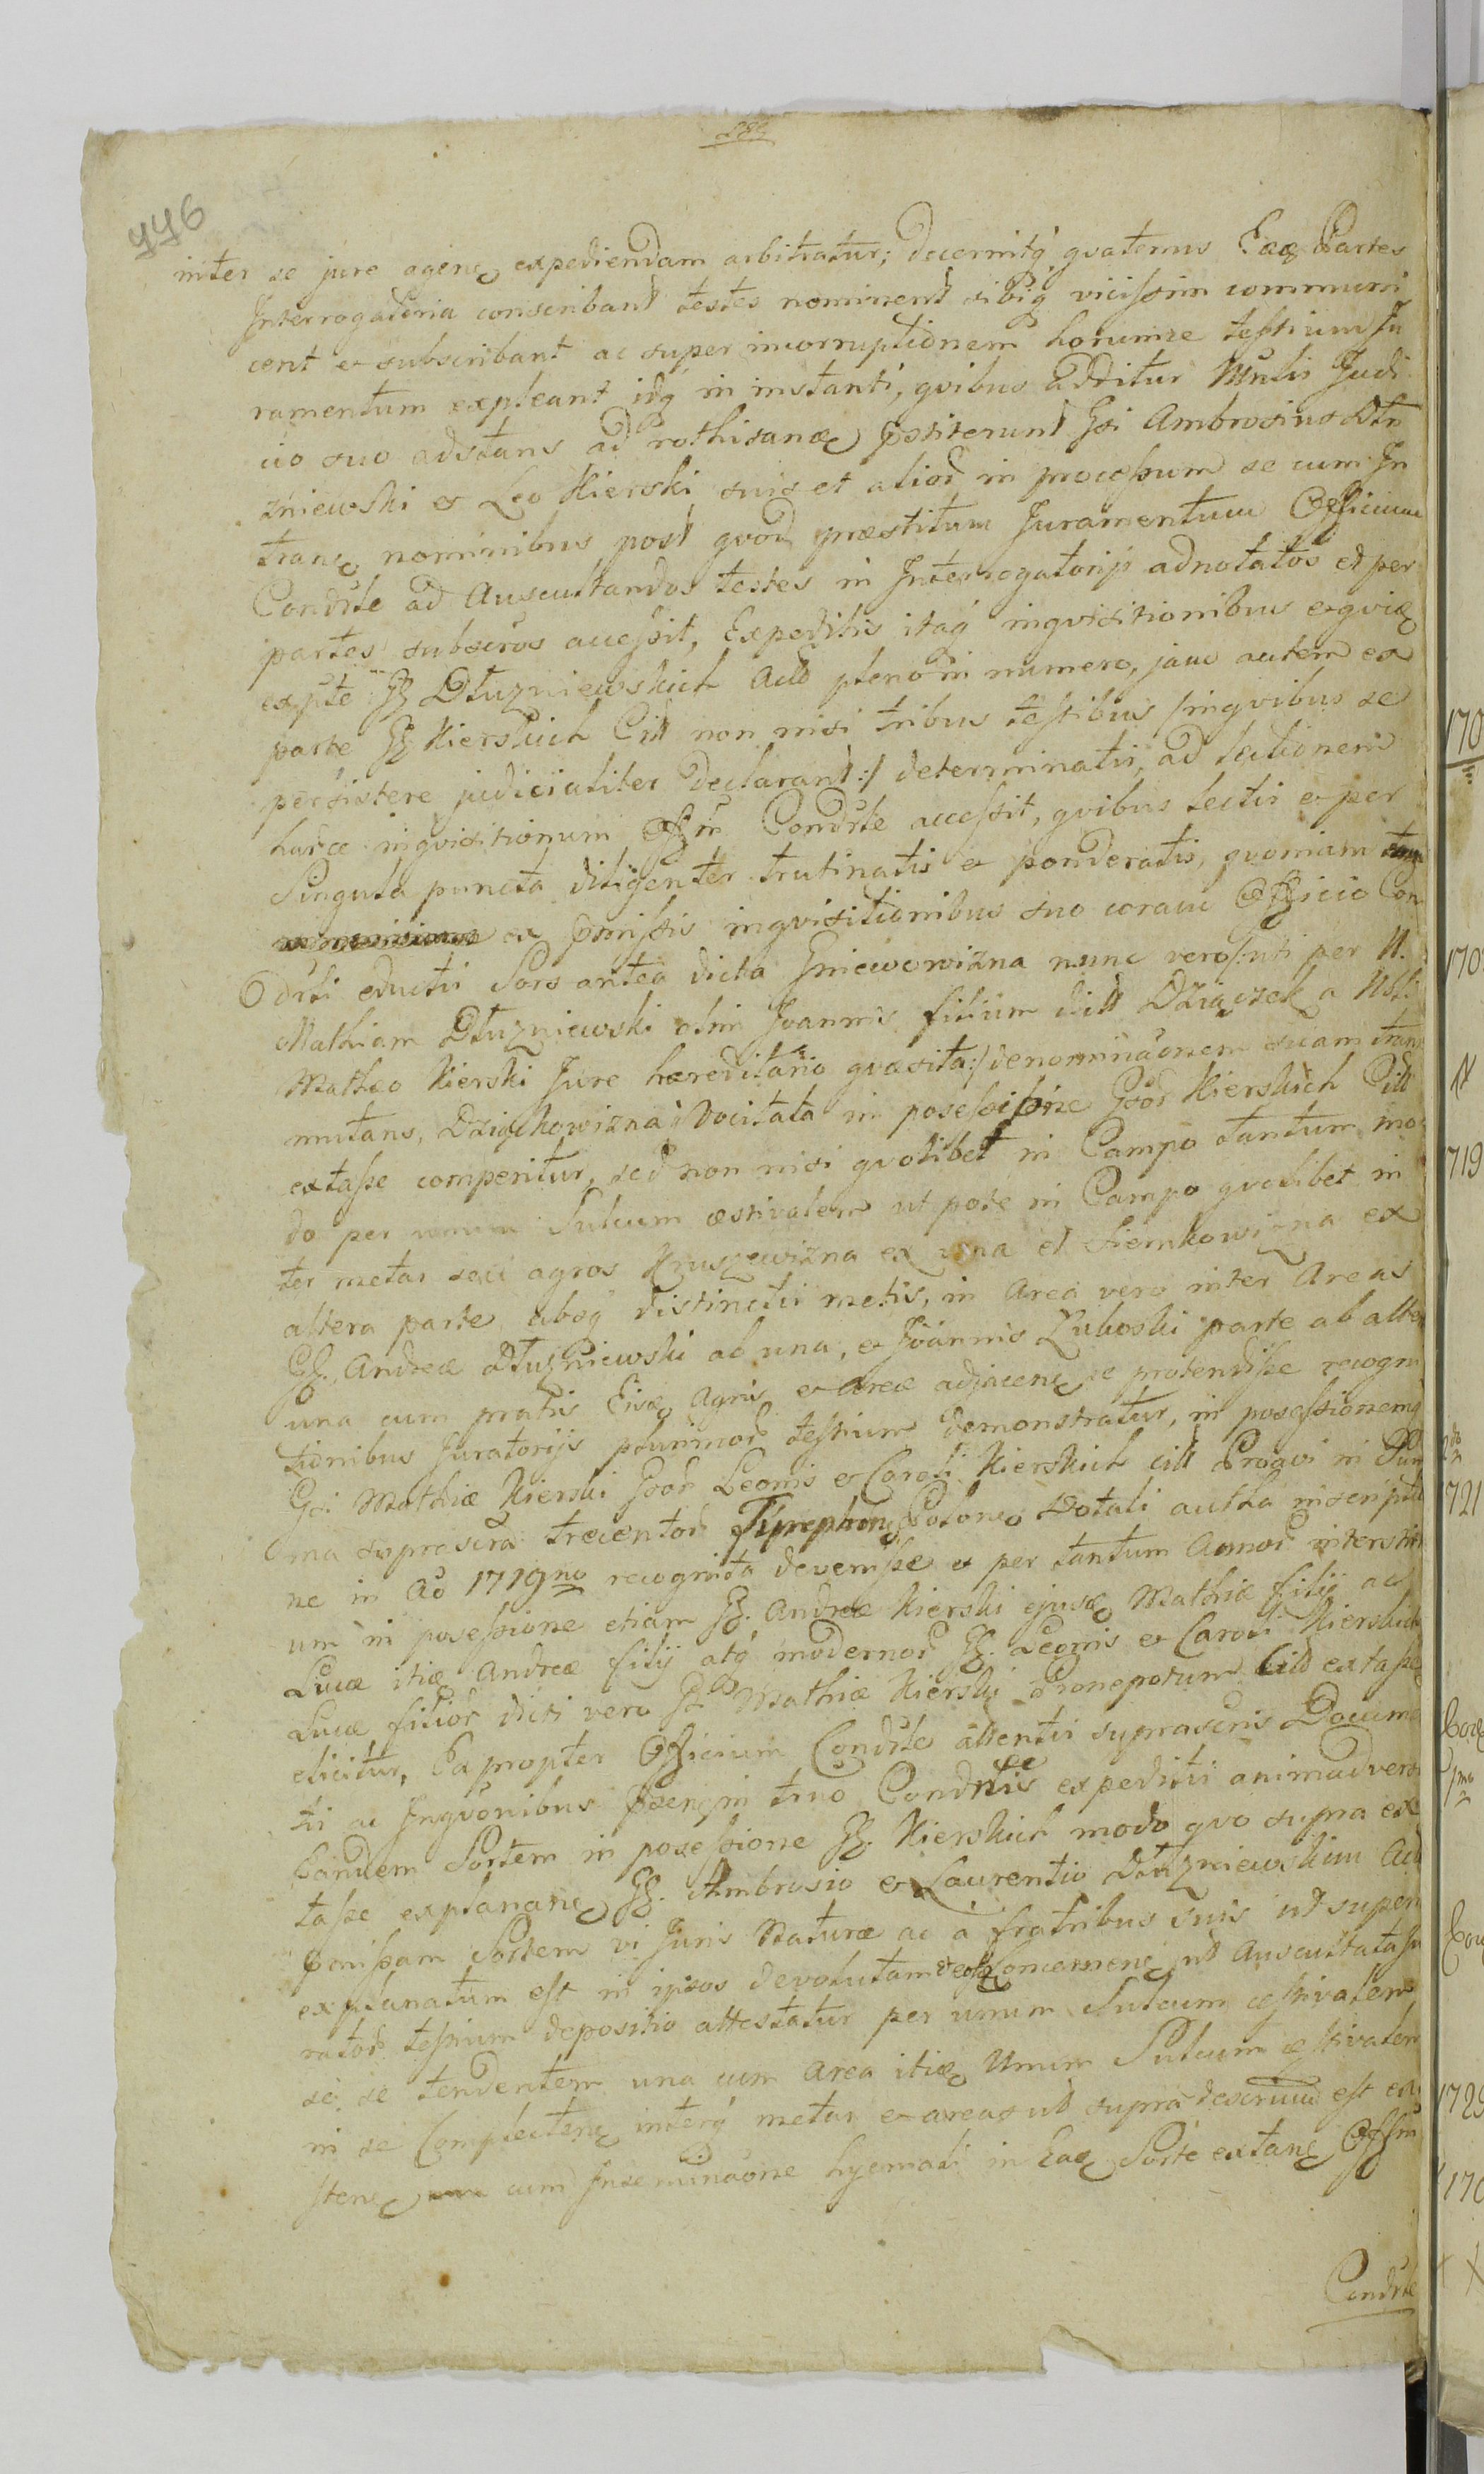 446
inter se jure agene expediendam arbitratur; decernitq. qvatenus Eaq. Partes
Interrogatoria conscribant testes nominent sibiq. vicissim communi
cent et subscribant ac super incorruptionem horumce testium Ju
ramentum expleant idq. in instanti, qvibus additur Mnlis Judi
cio suo adstans ad rothisanae pstiterunt Gsi Ambrosius Dłu
zniewski et Leo Kierski suis et alior in processum se cum In
trane nominibus post qvod praestitum Juramentum Officium
Condrle ad Auscultandos testes in Interrogatorijs adnotatos et per
partes subscros accessit, Expeditis itaq. inqvisitionibus eqvie
ex pte GG Dłuzniewskich Actt pleno in numero, jam autem ex
parte GG Kierskich Citt non nisi tribus testibus /: in qvibus se
persistere judicialiter declarant :/ determinatis, ad lectionem
harce inqvisitionum Off m Condrle accessit, qvibus lectis et per
Singula puncta diligenter trutinatis et ponderatis, qvoniam
ex pmissis inqvisitionibus suo coram Officio Con
drli eductis Sors antea dicta Gniewowizna nunc vero /: uti per N.
Mathiam Dłuzniewski olim Joannis filium dict Dziączek a Nbli
Matheo Kierski Jure haereditario qvaesita :/ denominaonem suam trans
mutans, Dziąchowizna Vocitata in posessione Gsor Kierskich Citt
extasse comperitur, sed non nisi qvolibet in Campo tantum mo
do per unum Sulcum aestivalem ut pote in Campo qvolibet in
ter metas seu agros Kruszewizna ex una et Siemkowizna ex
altera parte, aboq. distinctis metis, in Area vero inter Areas
GG. Andreae Dłuzniewski ab una, et Joannis Zuboski parte ab alte
una cum pratis Eisq. Agris et areae adjacene se protendisse recogni
tionibus Juratorijs plurimor testium demonstratur, in posessionemq.
Gsi Mathiae Kierski Gsor Leonis et Caroli Kierskich citt Proavi in Sum
ma suprascra trecentor Tynephon Polone Dotali autha inscriptio
ne in Ao 1719no recognita devenisse et per tantum Annor intersti
um in posessione etiam GG. Andreae Kierski ejusq. Mathiae filij ac
Lucae itiq. Andreae filij atq. modernor GG. Leonis et Caroli Kierskich
Lucae filior dicti vero G Mathiae Kierski Pronepotum Citt extasse
elicitur, Eapropter Officium Condrle attentis suprascris Docume
tis ac Inqvonibus psenq. in tmo Condrlis expeditis animadvers
Eandem Sortem in posessione GG. Kierskich modo qvo supra ex
tasse explanane GG. Ambrosio et Laurentio Dłuzniewskim Act
pmissam Sortem vi Juris Naturae ac a fratribus suis ut super
explanatum est in ipsos devolutam eosq. Concernene ut Auscultata Ju
rator testium depositio attestatur per unum Sulcum aestivalem
se se tendentem una cum Area itiq. Unum Sulcum aestivalem
in se Complectene interq. metas et areas ut supra descrium est ex
stene cum Inseminaone hyemali in Eaq. Sorte extane Offm
Condrle